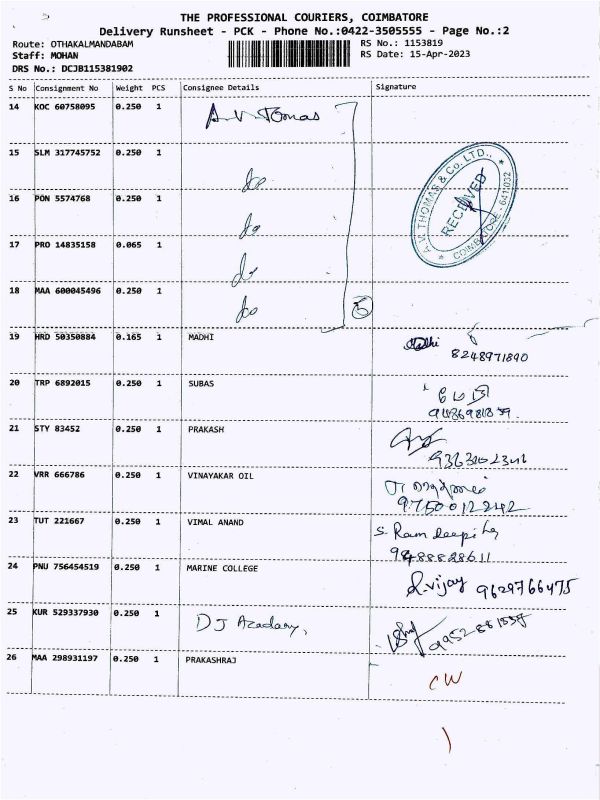 THE PROFESSIONAL COURIERS, COIMBATORE
Delivery Runsheet - PCK - Phone No.:0422-3505555 - Page No.:2
Route: OTHAKALMANDABAM
RS No.: 1153819
Staff: MOHAN
RS Date: 15-Apr-2023
DRS No.: DCJB115381902
S No Consignment No Weight PCS Consignee Details Signature
14 KOC 60758095 0.250 1 A.V. Tomas
15 SLM 317745752 0.250 1 do
16 PON 5574768 0.250 1 do
17 PRO 14835158 0.065 1 do
18 MAA 600045496 0.250 1 do 5
A.V. THOMAS & Co. LTD.,
RECEIVED
COIMBATORE - 641032
19 HRD 50350884 0.165 1 MADHI Madhi
8248971890
20 TRP 6892015 0.250 1 SUBAS
21 STY 83452 0.250 1 PRAKASH
22 VRR 666786 0.250 1 VINAYAKAR OIL
9750012242
23 TUT 221667 0.250 1 VIMAL ANAND S. Ram deepika
9488828611
24 PNU 756454519 0.250 1 MARINE COLLEGE
R.vijay 9629766475
25 KUR 529337930 0.250 1 DJ Acadamy,
26 MAA 298931197 0.250 1 PRAKASHRAJ
CW